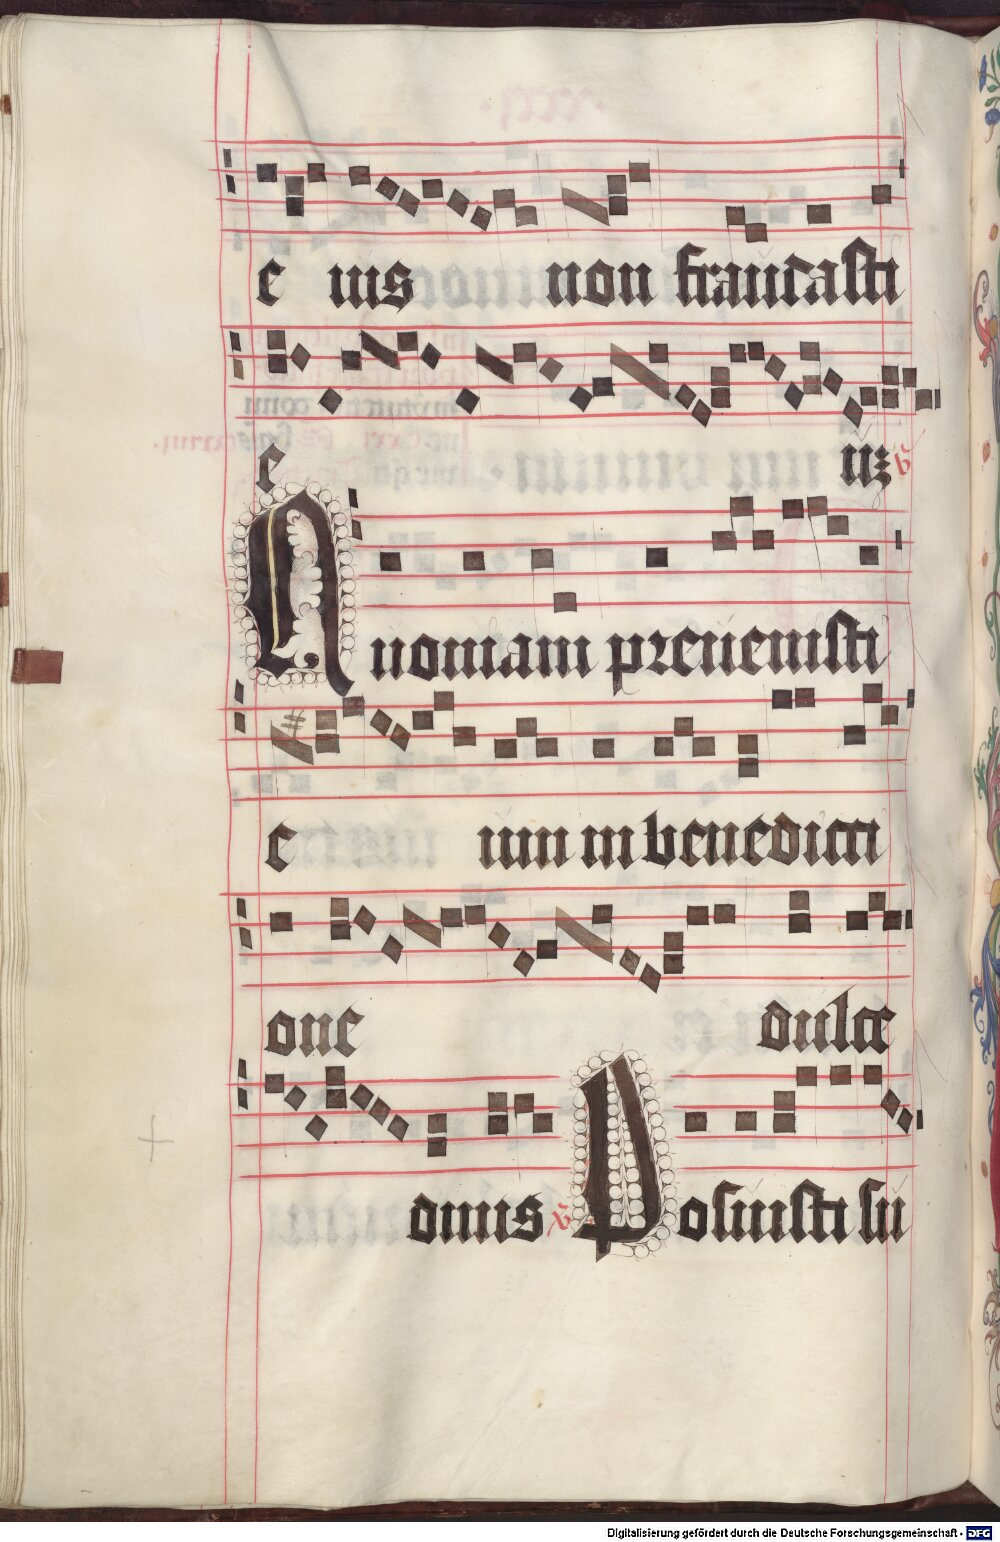 e ius non fraudasti
e um ℣
Quoniam preuenisti
e um in benedicti
one dulce
dinis ℣ Posuisti su
Digitalisierung gefördert durch die Deutsche Forschungsgemeinschaft - DFG